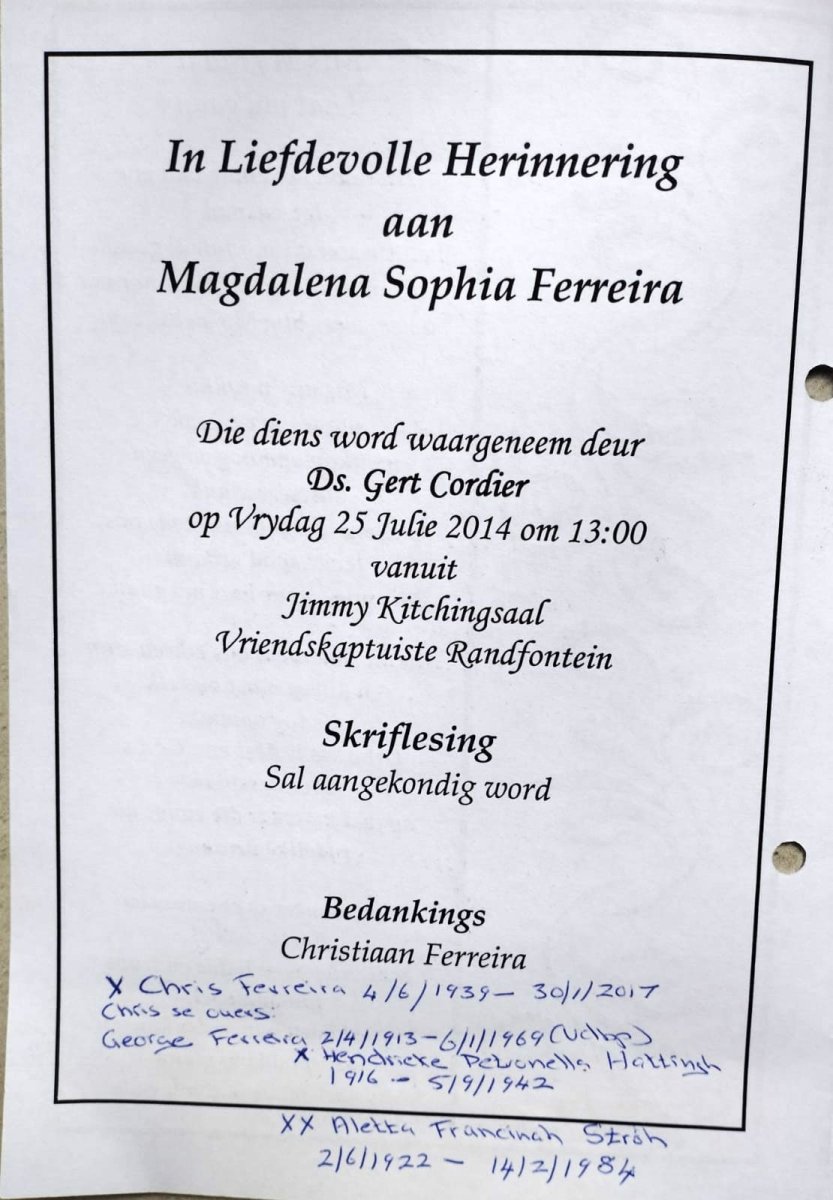 In Liefdevolle Herinnering
aan
Magdalena Sophia Ferreira
Die diens word waargeneem deur
Ds. Gert Cordier
op Vrydag 25 Julie 2014 om 13:00
vanuit
Jimmy Kitchingsaal
Vriendskaptuiste Randfontein
Skriflesing
Sal aangekondig word
Bedankings
Christiaan Ferreira
X Chris Ferreira 4/6/1939 – 30/1/2017
Chris se ouers:
George Ferreira 2/4/1913 – 6/1/1969 (Vdbp)
X Hendrieke Petronella Hattingh
1916 - 5/9/1942
XX Aletta Francinah Ströh
2/6/1922 – 14/2/1984